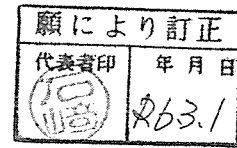 願により訂正
代表者印 年月日
石﨑 R63.1